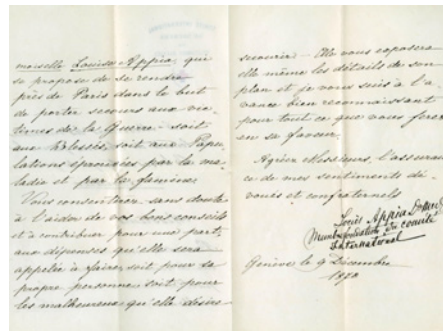 moiselle Louise Appia, qui
se propose de se rendre
près de Paris dans le but
de porter secours aux vic-
times de la Guerre - soit
aux blessés, soit aux Popu-
lations éprouvées par la ma-
ladie et par la famine.
Vous consentirez sans doute
à l'aider de vos bons conseils
et à contribuer pour une part
aux dépenses qu'elle sera
appelée à faire, soit pour sa
propre personne soit pour
les malheureux qu'elle désire
secourir - Elle vous exposera
elle même les détails de son
plan et je vous suis à l'a-
vance bien reconnaissant
pour tout ce que vous ferez
en sa faveur.
Agréez Messieurs, l'assuran
ce de mes sentiments dé-
voués et confraternels
Louis Appia
Membre du comité
International
Genève le 9 Décembre
1870